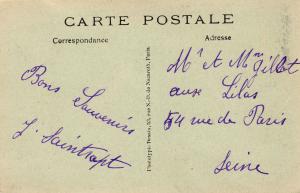 CARTE POSTALE
Correspondance
Adresse
Bons Souvenirs
J. Saintrapt
Mr et Mme Gillot
aux Lilas
54 rue de Paris
Seine
Phototypie Tessier, 53, rue N.-D. de Nazareth, Paris.